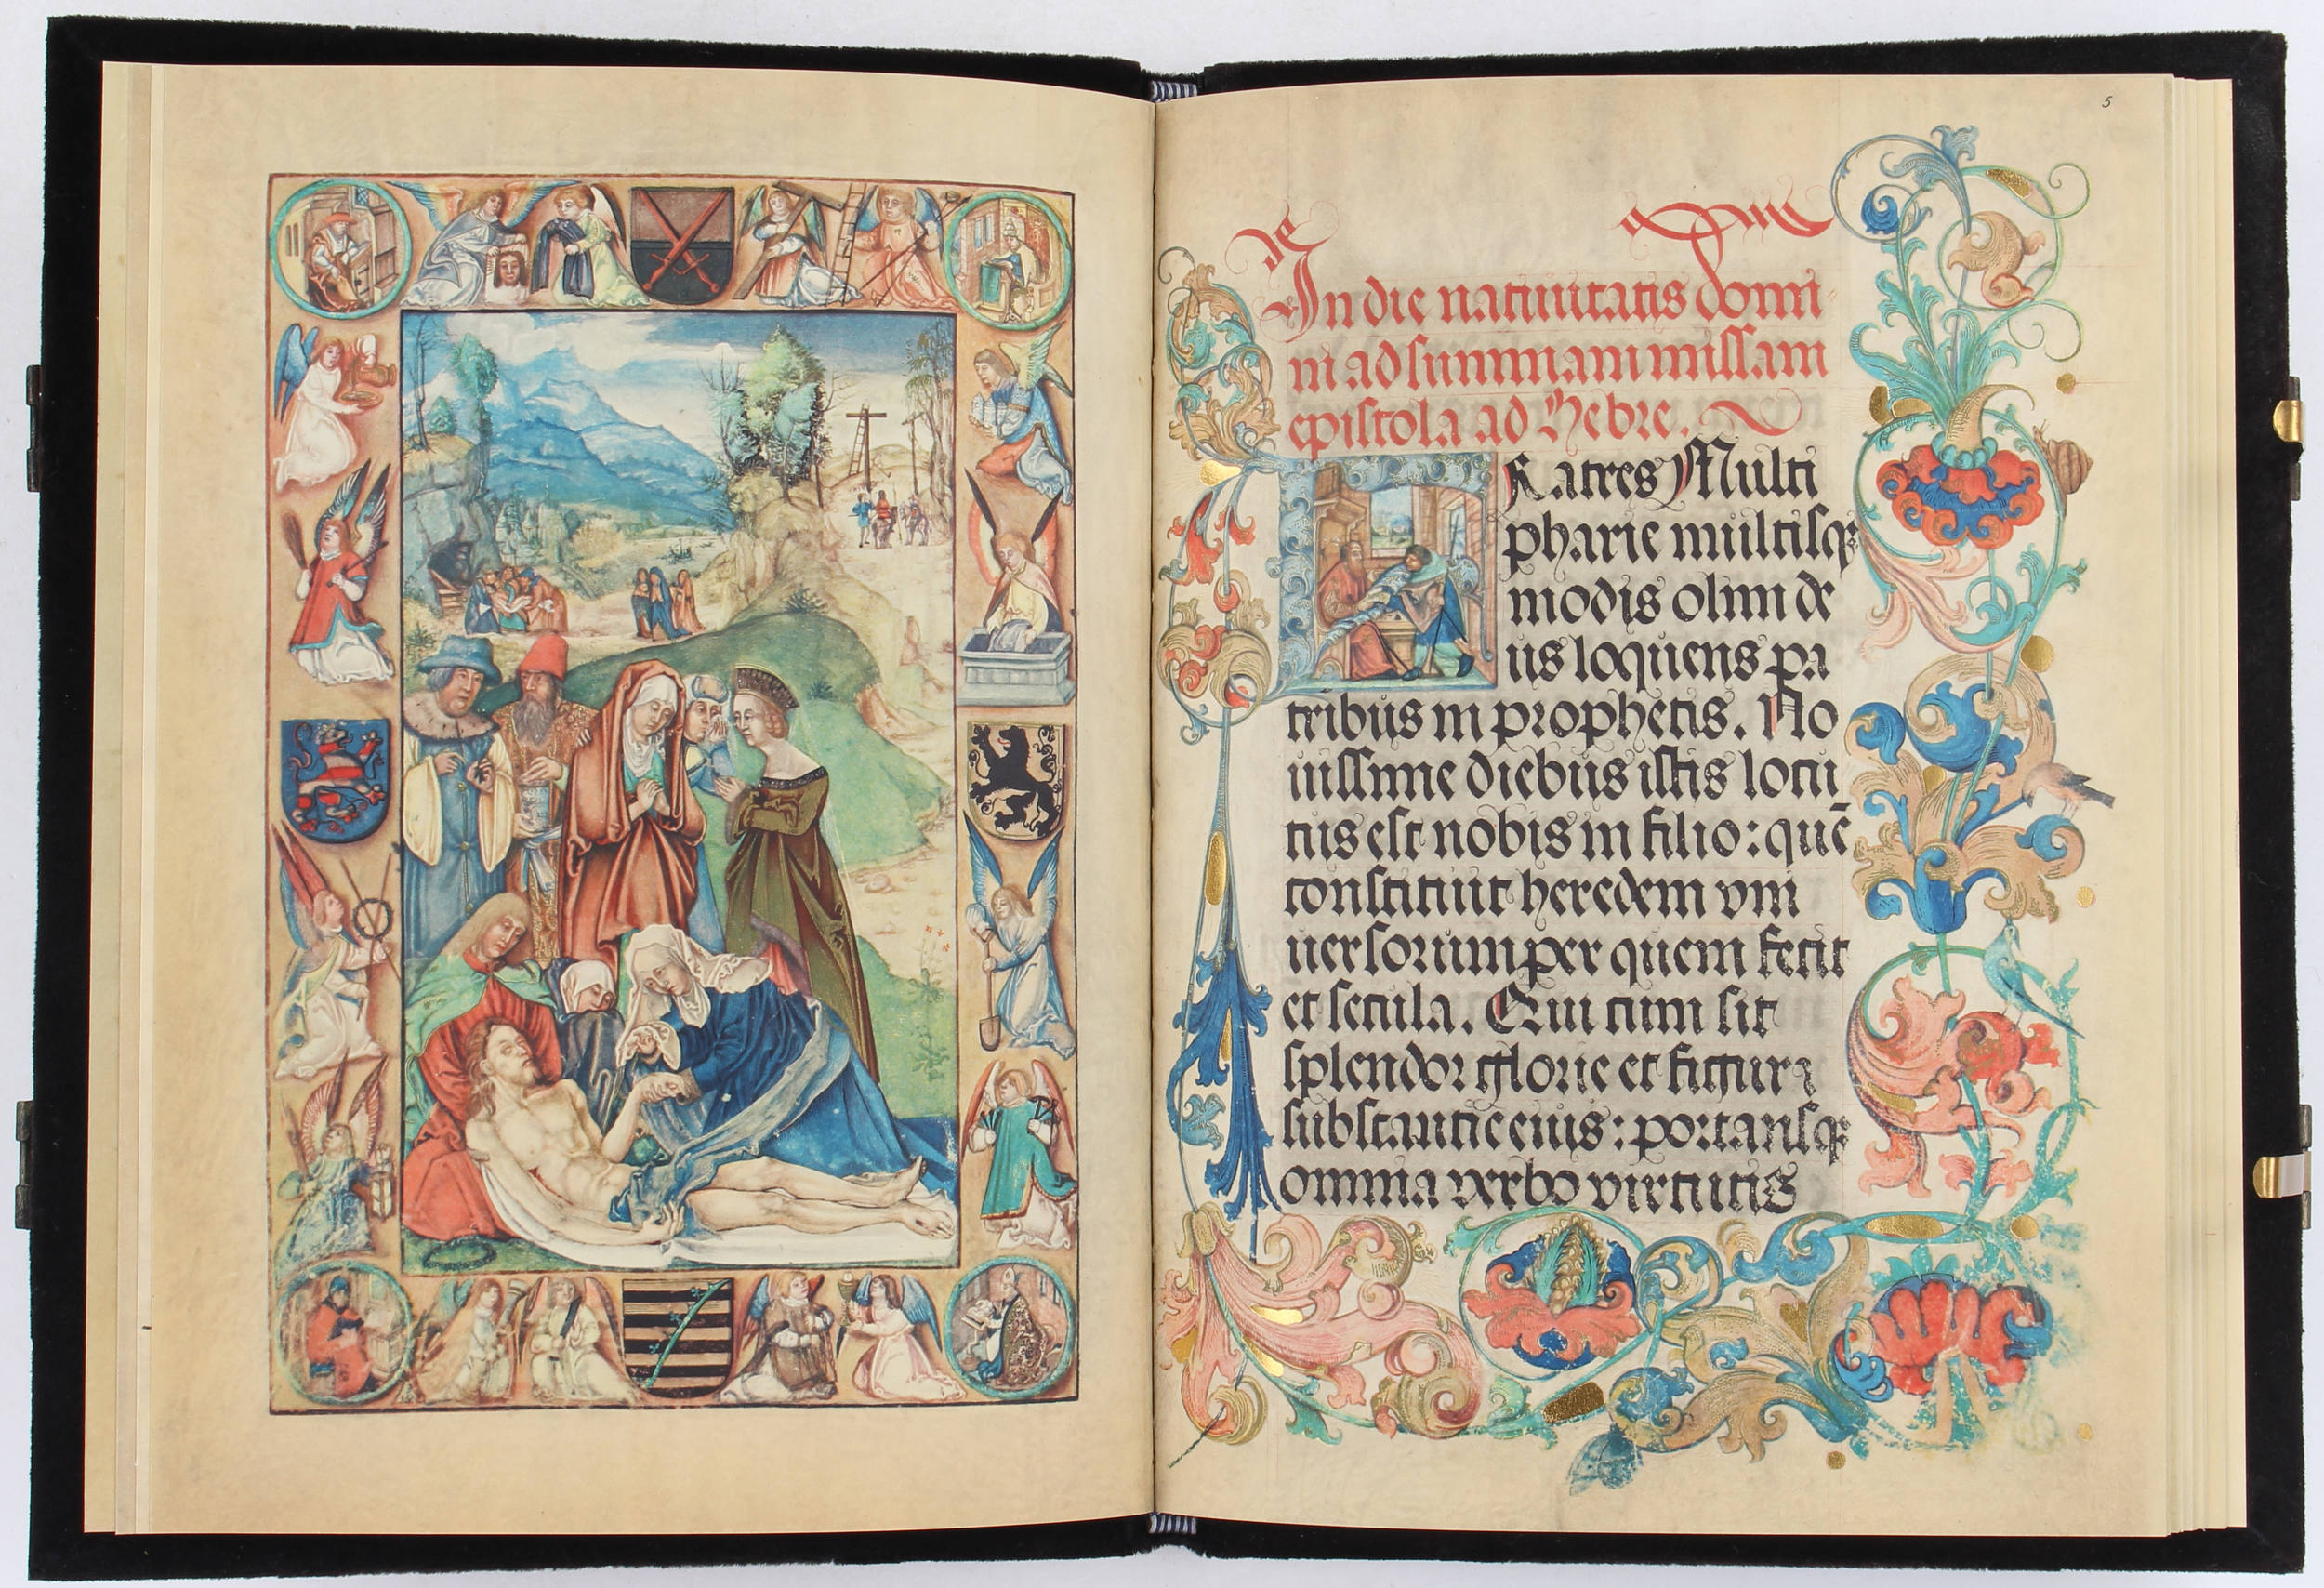 5
In die natiuitatis domi-
ni ad summam missam
epistola ad Hebre.
Fratres Multi
pharie multisq;
modis olim de
us loquens pa
tribus in prophetis. No
uissime diebus istis locu
tus est nobis in filio: quē
constituit heredem vni
uersorum per quem fecit
et secula. Qui cum sit
splendor glorie et figura
substantie eius: portansq;
omnia verbo virtutis